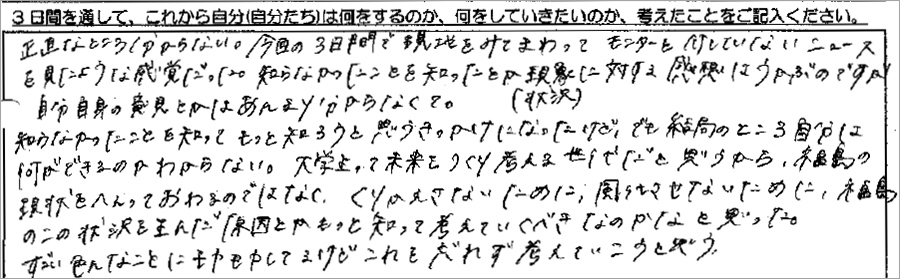 3日間を通して、これから自分(自分たち)は何をするのか、何をしていきたいのか、考えたことをご記入ください。
正直なところ分からない。今回の3日間で現地をみてまわって モニターを付していないニュース
を見たような感覚だった。知らなかったことを知ったことや現象に対する感想はうかぶのですが
(状況)
自分自身の意見とかはあんまり分からなくて。
知らなかったことを知ってもっと知ろうと思うきっかけになったけど、でも結局のところ自分は
何ができるのかわからない。大学生って未来をつくり考える世代だと思うから、福島の
現状をへえっておわるのではなく、くりかえさないために、風化させないために、福島
のこの状況を生んだ原因とかもっと知って考えていくべきなのかなと思った。
すごい色んなことにモヤモヤしてるけどこれをだれず考えていこうと思う。